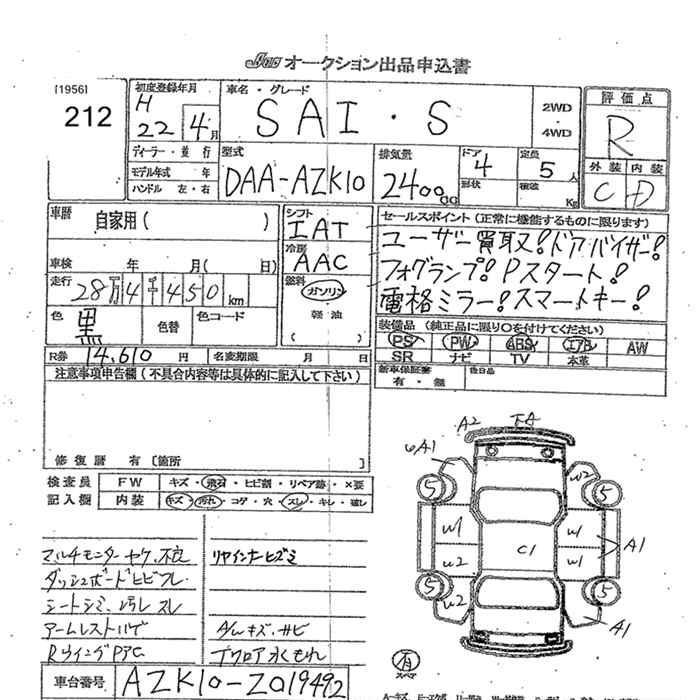 オークション出品申込書
[1956]
212
初度登録年月
H 22 4月
車名・グレード
SAI・S
2WD
・
4WD
評価点
R
外装 内装
C D
ディーラー・並行
モデル年式 年
ハンドル 左・右
型式
DAA-AZK10
排気量
2400CC
ドア
4
形状
定員
5人
積載
Kg
車歴
自家用( )
車検 年 月( 日)
走行 28万4千450km
色 黒
色替
色コード
シフト
IAT
冷房
AAC
燃料
ガソリン
軽油
( )
セールスポイント(正常に機能するものに限ります)
ユーザー買取!ドアバイザー!
フォグランプ!Pスタート!
電格ミラー!スマートキー!
装備品(純正品に限り○を付けてください)
PS PW ABS エアB AW
SR ナビ TV 本革
新車保証書
有・無
後日品
R券 14,610円
名変期限 月 日
注意事項申告欄(不具合内容等は具体的に記入して下さい)
修復歴 有[箇所 ]
検査員
記入欄
FW キズ・飛石・ヒビ割・リペア跡・×要
内装 キズ・汚れ・コゲ・穴・スレ・キレ・破レ
マルチモニターヤケ、不良
ダッシュボードヒビワレ
シートシミ、汚レスレ
リヤインナーヒズミ
A/Wキズ・サビ
車台番号 AZK10-2019492
A2
A1
W2
5
5
W1
W1
A1
C1
W2
W1
5
5
W2
A1
有
スペア